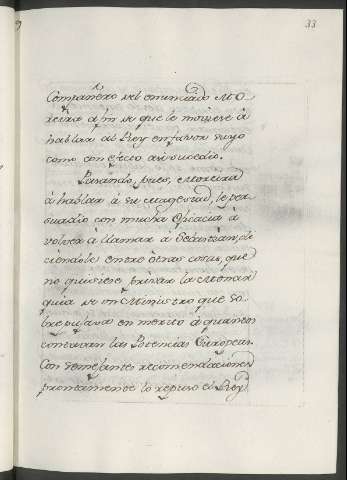 33
Compañero del enunciado Mo-
reira a fin de que le moviese à
hablar al Rey en favor suyo
como con efecto asi sucedio.
Pasando, pues, Moreira
à hablar à su Magestad, le per-
suadio con mucha eficacia à
volver à llamar à Sebastian, di-
ciendole entre otras cosas, que
no quisiese privar la Monar-
quia de un Ministro que so-
brepujava en merito à quantos
conservan las Potencias Europeas.
Con semejantes recomendaciones
prontamente lo repuso el Rey